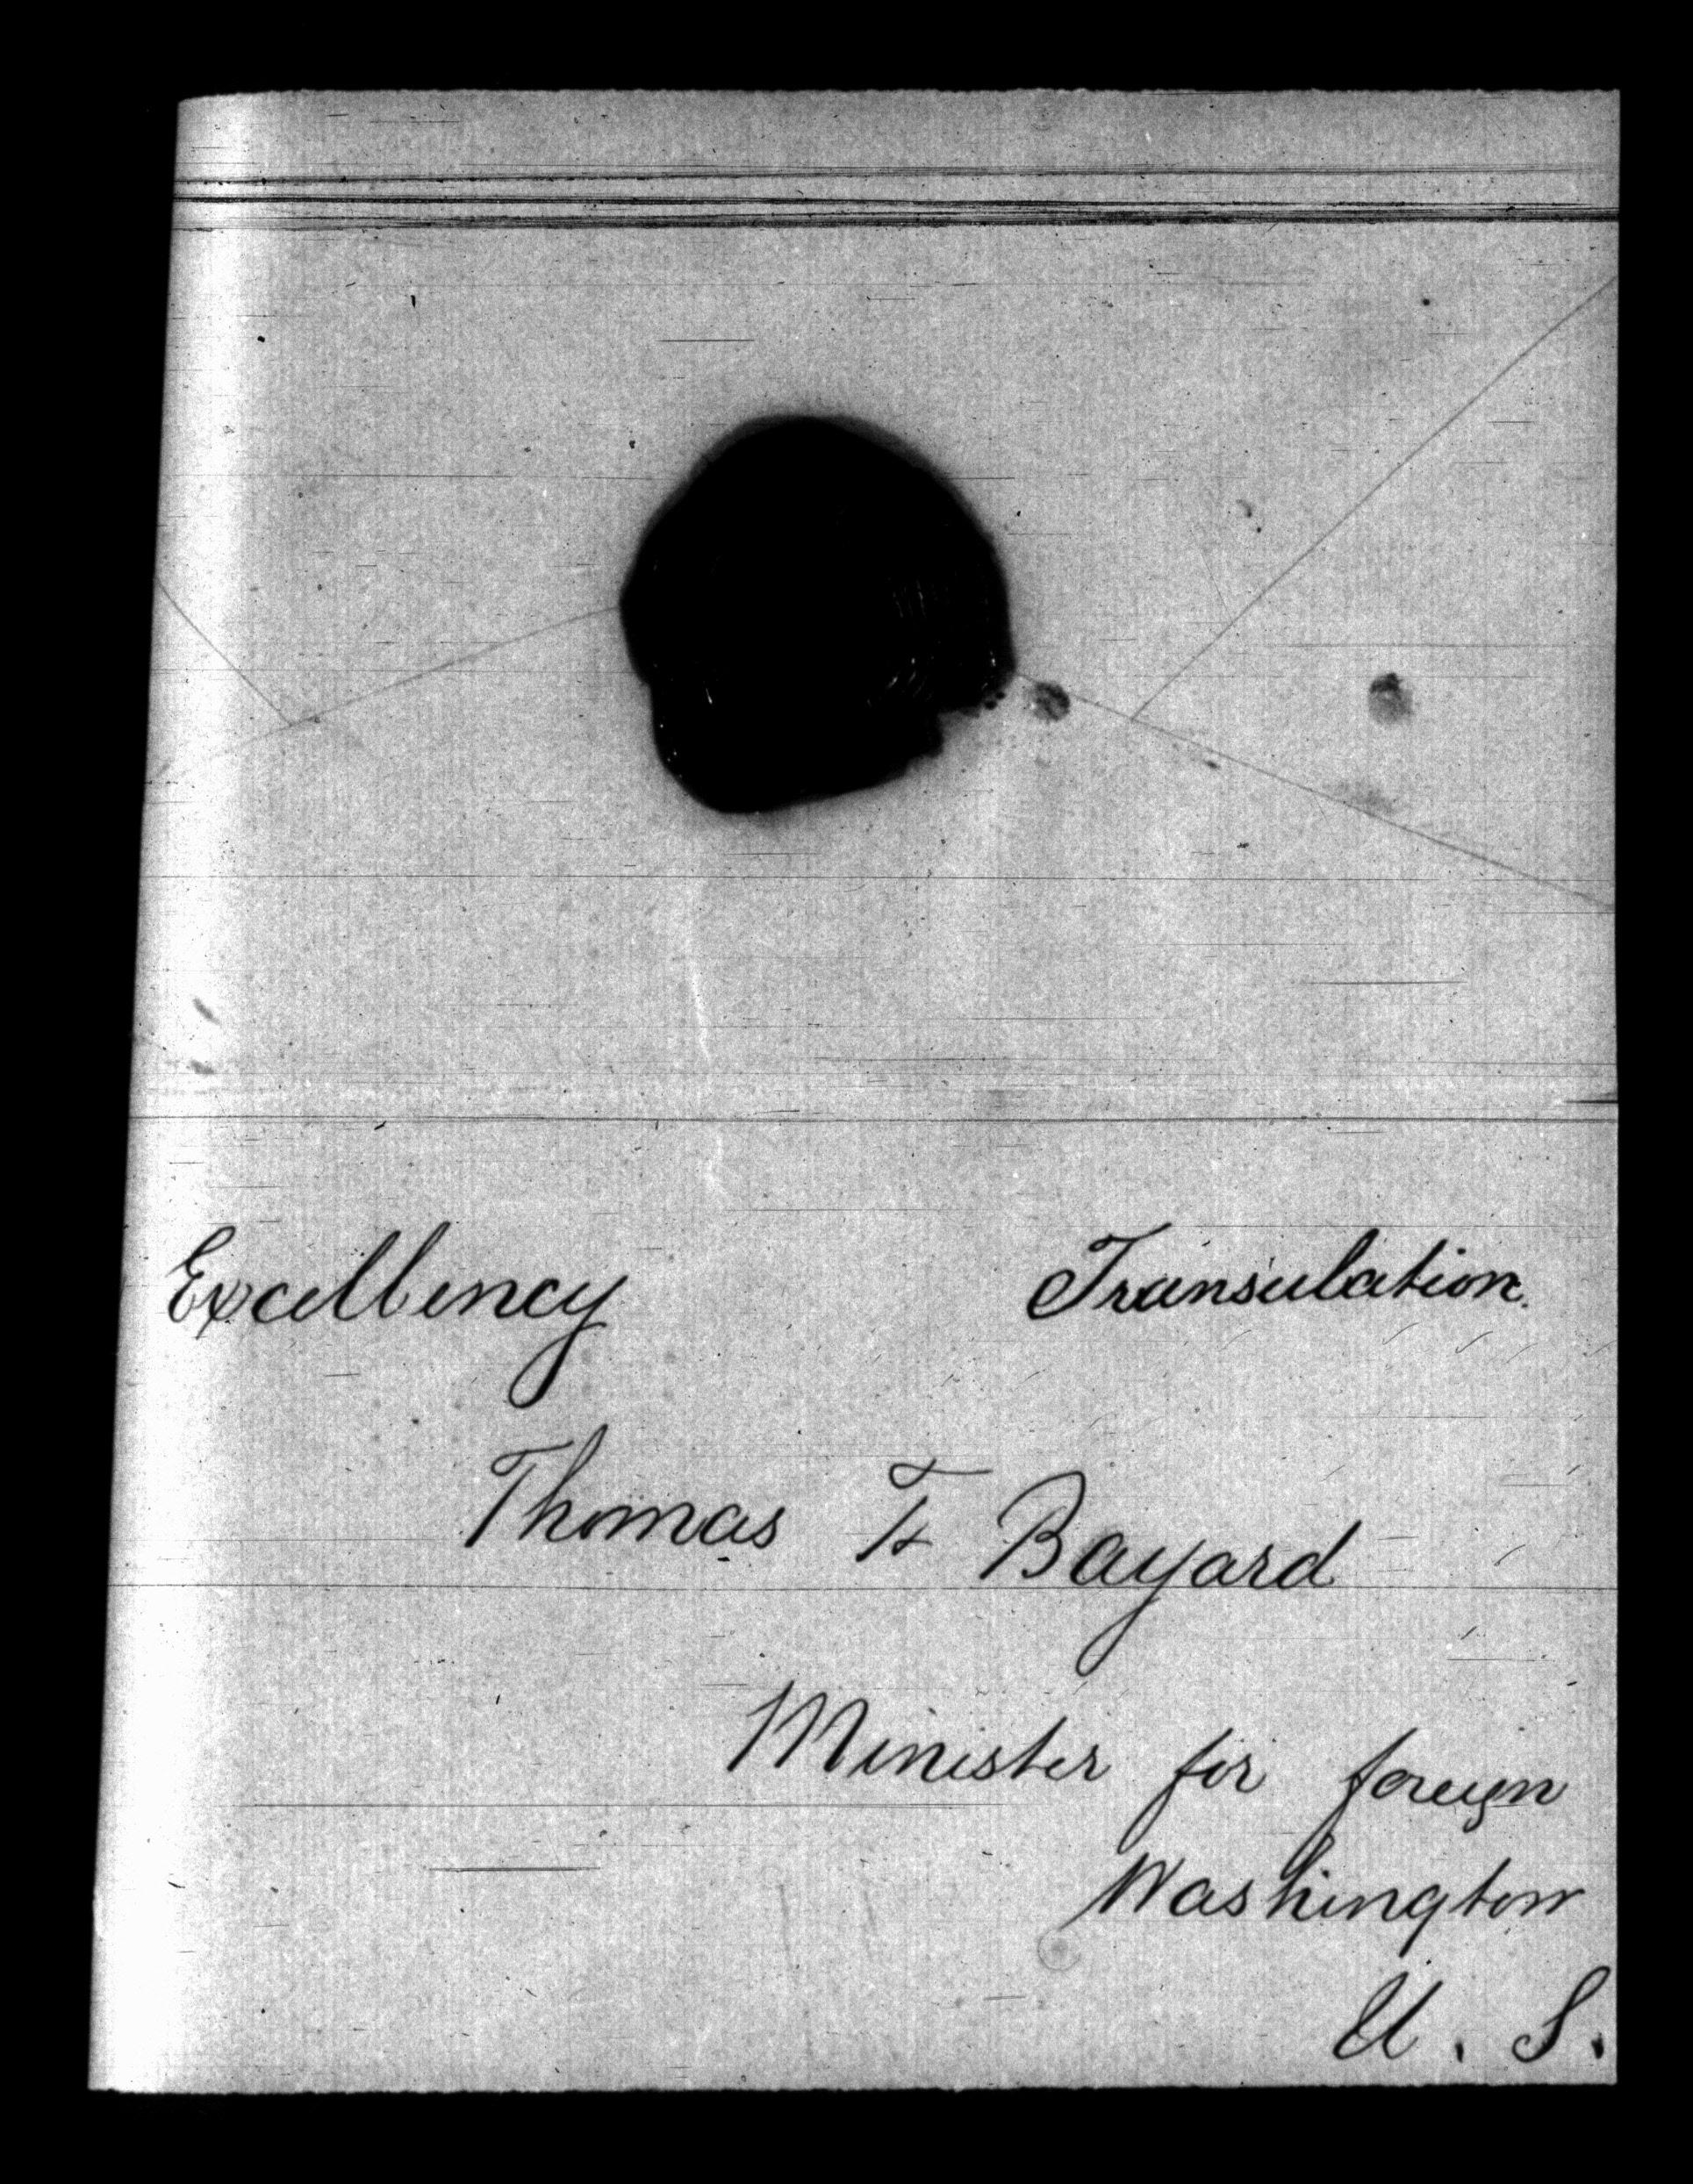 Excellency Transulation.
Thomas F Bayard
Minister for foreign
Washington
U. S.